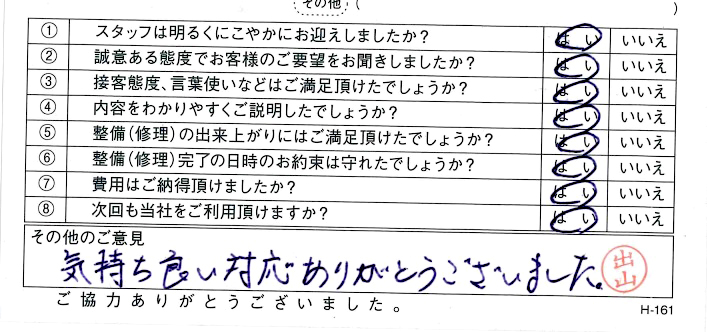 その他 (　)
① スタッフは明るくにこやかにお迎えしましたか？ はい いいえ
② 誠意ある態度でお客様のご要望をお聞きしましたか？ はい いいえ
③ 接客態度、言葉使いなどはご満足頂けたでしょうか？ はい いいえ
④ 内容をわかりやすくご説明したでしょうか？ はい いいえ
⑤ 整備(修理)の出来上がりにはご満足頂けたでしょうか？ はい いいえ
⑥ 整備(修理)完了の日時のお約束は守れたでしょうか？ はい いいえ
⑦ 費用はご納得頂けましたか？ はい いいえ
⑧ 次回も当社をご利用頂けますか？ はい いいえ
その他のご意見
気持ち良い対応ありがとうございました。 出山
ご協力ありがとうございました。 H-161